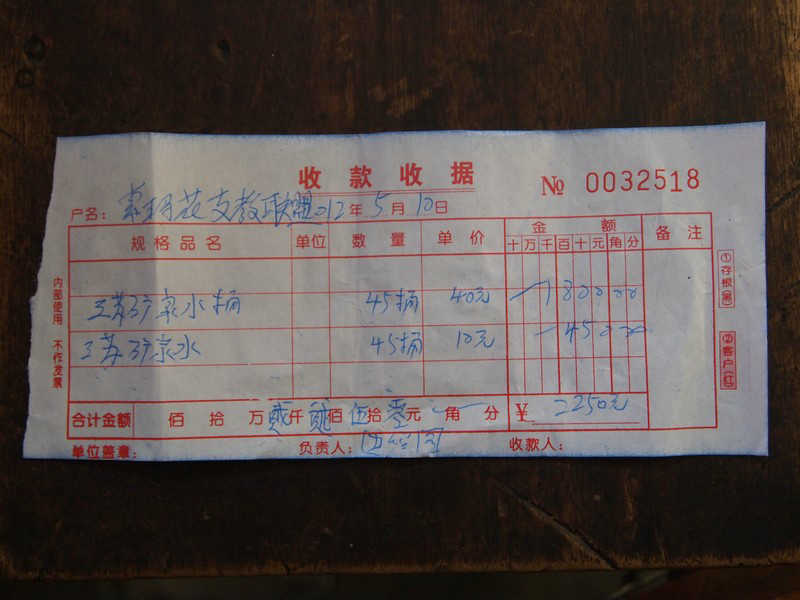 收款收据 № 0032518
户名: 索玛花支教联盟 2012年 5月 10日
规格品名 单位 数量 单价 金额 备注
十 万 千 百 十 元 角 分
矿泉水桶 45桶 40元 1 8 0 0 0 0
矿泉水 45桶 10元 4 5 0 0 0
合计金额 佰 拾 万 贰仟 贰佰 伍拾 零元 角 分 ¥ 2250元
单位盖章: 负责人: 收款人:
内部使用 不作发票
①存根(黑)
②客户(红)